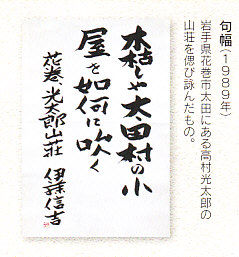 句幅(1989年)
岩手県花巻市太田にある高村光太郎の
山荘を偲び詠んだもの。
木枯しや太田村の小
屋を如何に吹く
花巻、光太郎山荘 伊藤信吉